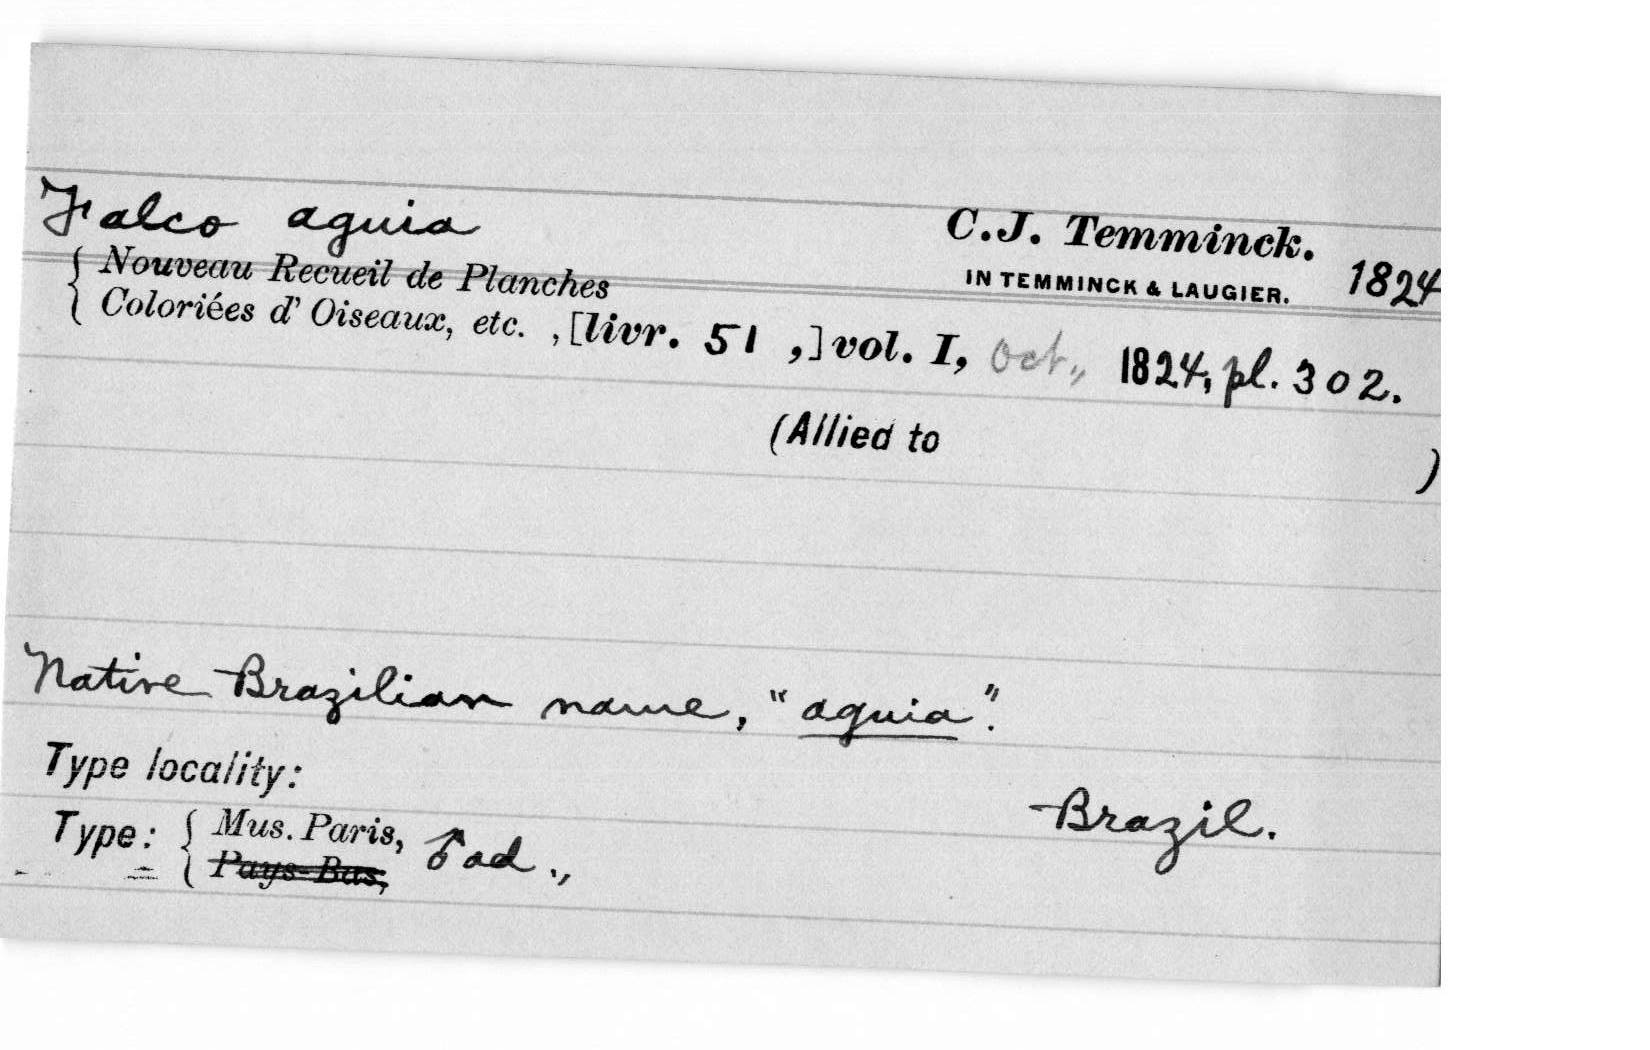 Falco aguia C.J. Temminck.
IN TEMMINCK & LAUGIER. 1824
{ Nouveau Recueil de Planches
Coloriées d' Oiseaux, etc. , [livr. 51 ,] vol. I, Oct., 1824, pl. 302.
(Allied to )
Native Brazilian name, "aguia".
Type locality:
Brazil.
Type: { Mus. Paris, ♂ ad.,
Pays-Bas,